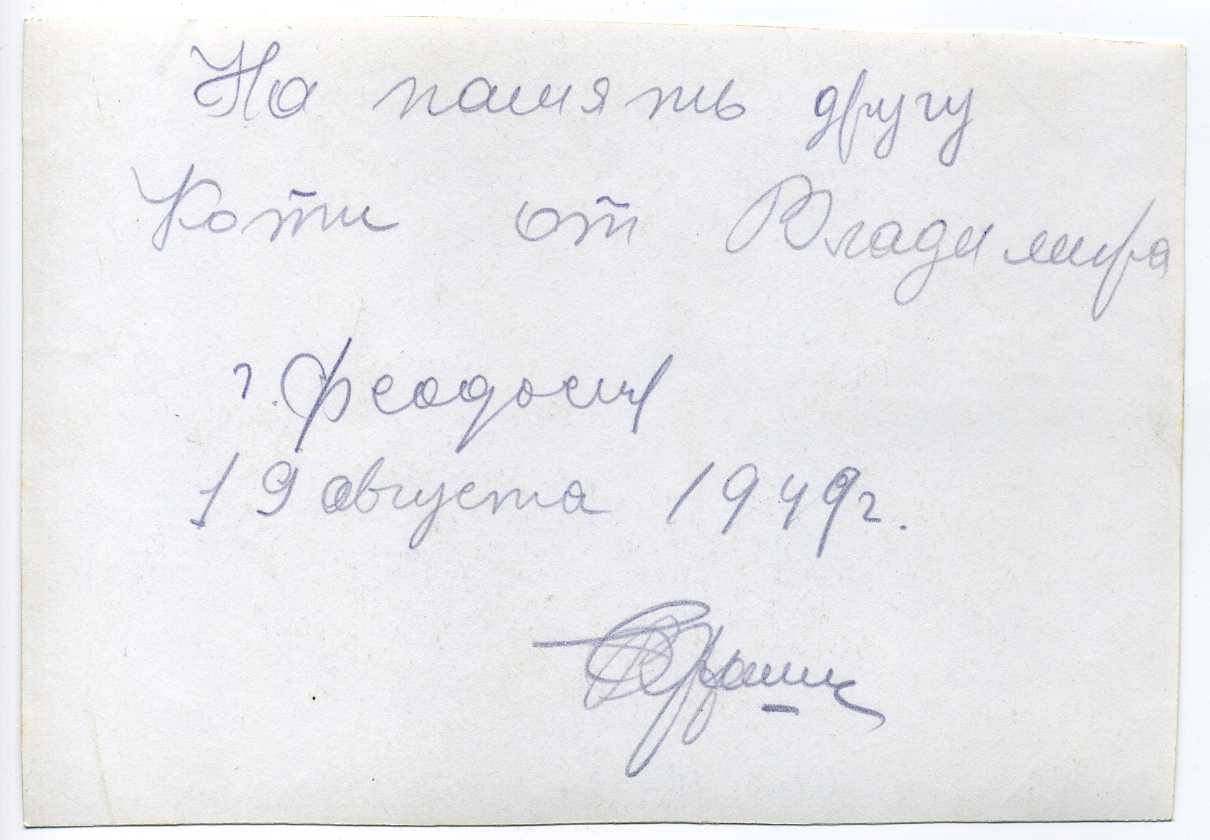 На память другу
Коти от Владимира
г. Феодосия
19 августа 1949г.